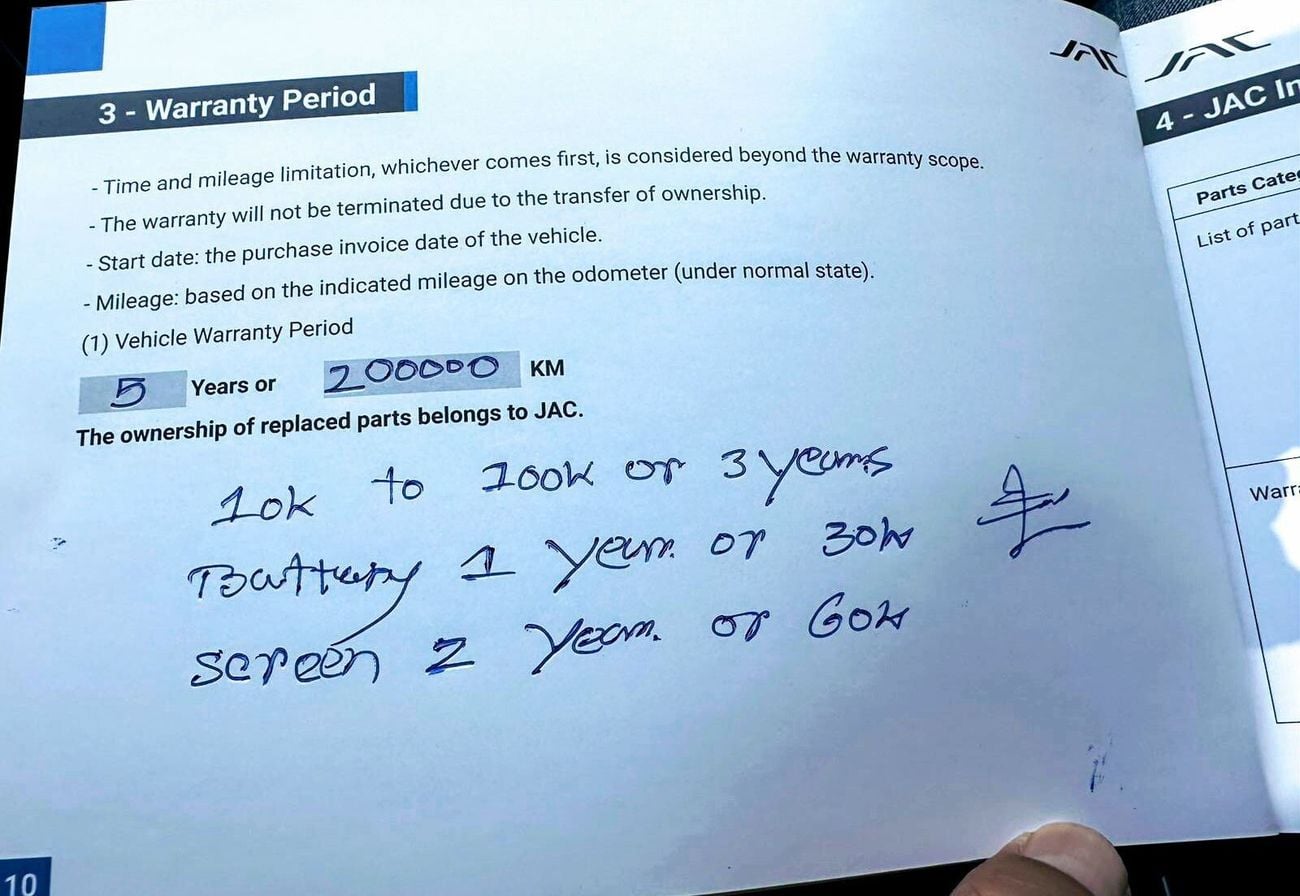 JAC
JAC
3 - Warranty Period
- Time and mileage limitation, whichever comes first, is considered beyond the warranty scope.
- The warranty will not be terminated due to the transfer of ownership.
- Start date: the purchase invoice date of the vehicle.
- Mileage: based on the indicated mileage on the odometer (under normal state).
(1) Vehicle Warranty Period
5 Years or 200000 KM
The ownership of replaced parts belongs to JAC.
10k to 100k or 3 years
Battery 1 year or 30k
screen 2 year or 60k
10
4 - JAC In
Parts Cate
List of part
Warr